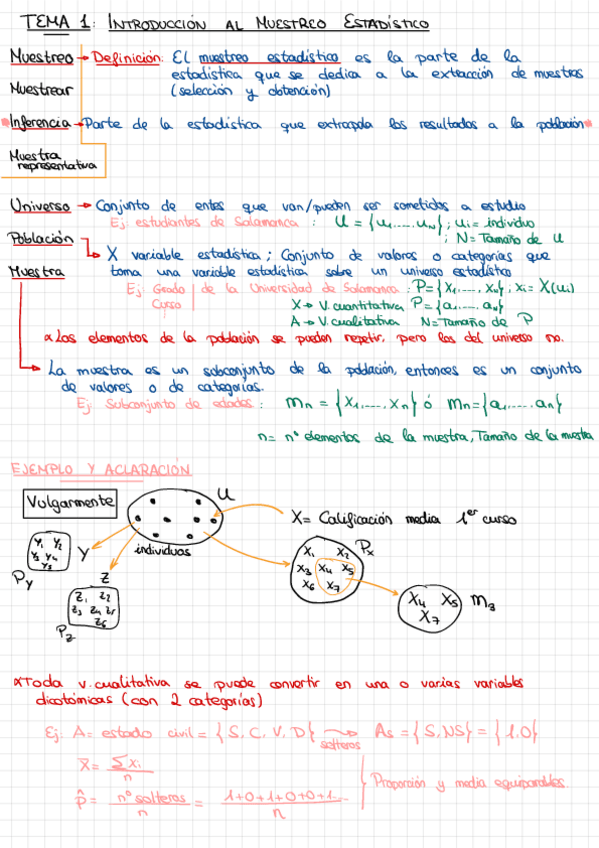 TEMA 1: INTRODUCCIÓN AL MUESTREO ESTADÍSTICO
Muestreo → Definición: El muestreo estadístico es la parte de la
estadística que se dedica a la extracción de muestras
Muestrear
(selección y obtención)
*Inferencia → Parte de la estadística que extrapola los resultados a la población*
Muestra
representativa
Universo → Conjunto de entes que van/pueden ser sometidos a estudio
Ej: estudiantes de Salamanca : U = {u₁....., u_N} ; ui = individuo
; N = Tamaño de U
Población
X variable estadística ; Conjunto de valores o categorías que
Muestra
toma una variable estadística sobre un universo estadístico
Ej: Grado | de la Universidad de Salamanca : P = {x₁....., x_N} ; xi = X(ui)
Curso | X → V. cuantitativa P = {a₁....., a_N}
A → V. cualitativa N = Tamaño de P
* Los elementos de la población se pueden repetir, pero los del universo no.
La muestra es un subconjunto de la población, entonces es un conjunto
de valores o de categorías.
Ej: Subconjunto de edades : mn = {x₁,....., xn} ó mn = {a₁....., an}
n = nº elementos de la muestra, Tamaño de la muestra
EJEMPLO Y ACLARACIÓN
Vulgarmente
U
X = Calificación media 1er curso
individuos
Y₁ Y₂
Y₃ Y₄
Y₅
Y
P_Y
Z
Z₁ Z₂
Z₃ Z₄ Z₅
Z₆
P_Z
X₁ X₂
X₃ X₄ X₅
X₆ X₇
P_X
X₄ X₅
X₇
m₃
* Toda v. cualitativa se puede convertir en una o varias variables
dicotómicas (con 2 categorías)
Ej: A = estado civil = {S, C, V, D} → solteros As = {S, NS} = {1, 0}
x̄ = Σxi / n
p̂ = nº solteros / n = 1+0+1+0+0+1... / n
Proporción y media equiparables.